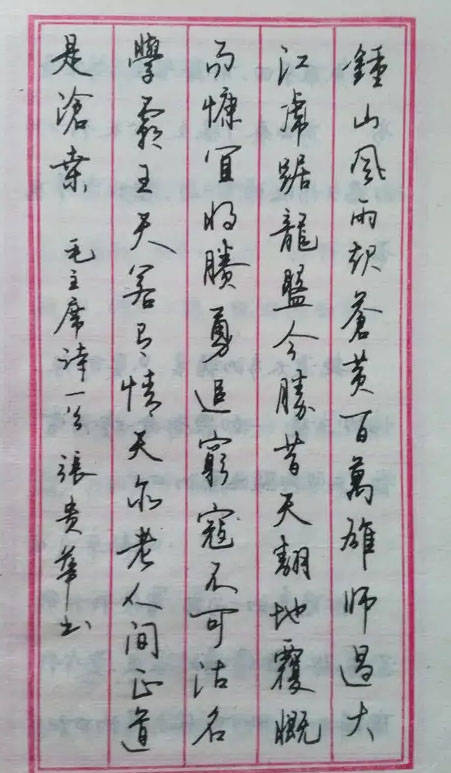 鍾山风雨起蒼黄百萬雄师過大
江虎踞龍盤今勝昔天翻地覆慨
而慷宜将賸勇追窮寇不可沽名
學霸王天若有情天亦老人间正道
是滄桑 毛主席詩一首 張貴華书